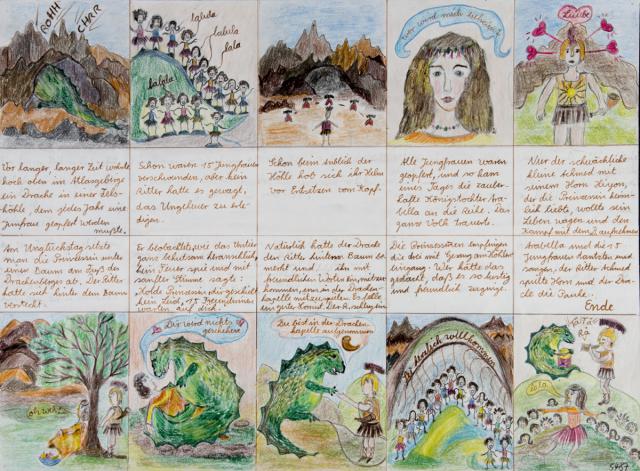 ROHH
CHRR
lalula
lalula
lala
lalula
Liebe
Vor langer, langer Zeit wohnte
hoch oben im Atlasgebirge
ein Drache in einer Fels-
höhle, dem jedes Jahr eine
Jungfrau geopfert werden
musste.
Schon waren 15 Jungfrauen
verschwunden, aber kein
Ritter hatte es gewagt,
das Ungeheuer zu erle-
digen.
Schon beim Anblick der
Höhle hob sich ihr Helm
vor Entsetzen vom Kopf.
Alle Jungfrauen waren
geopfert, und so kam
eines Tages die zauber-
hafte Königstochter Ara-
bella an die Reihe. Das
ganze Volk trauerte.
Nur der schwächliche
kleine Schmied mit
seinem Horn
der die Prinzessin heim-
lich liebte, wollte sein
Leben wagen und den
Kampf mit dem aufnehmen
Am Unglückstag setzte
man die Prinzessin unter
einen Baum am Fuß des
Drachenberges ab. Der Ritter
hatte sich hinter dem Baum
versteckt.
Er beobachtete, wie das Untier
ganz behutsam herannahte,
kein Feuer spie und mit
sanfter Stimme sagte:
"Holde Prinzessin, dir geschieht
kein Leid, 15 Freundinnen
warten auf dich.
Natürlich hatte der Drache
den Ritter hinterm Baum be-
merkt und ihn mit
freundlichen Worten ein, mitzu-
kommen, um in der Drachen-
kapelle mitzuspielen. Es fehle
ein Horn
Die Prinzessinnen empfingen
die drei mit Gesang am Höhlen-
eingang. Wer hätte das
gedacht, daß es so lustig
und freundlich zuginge.
Arabella und die 15
Jungfrauen tanzten und
sangen, der Ritter-Schmied
spielte Horn und der Dra-
che die Pauke.
Ende
Oh weh!
Dir wird nichts
geschehen
Du bist in der Drachen-
kapelle aufgenommen
herzlich willkommen
lala